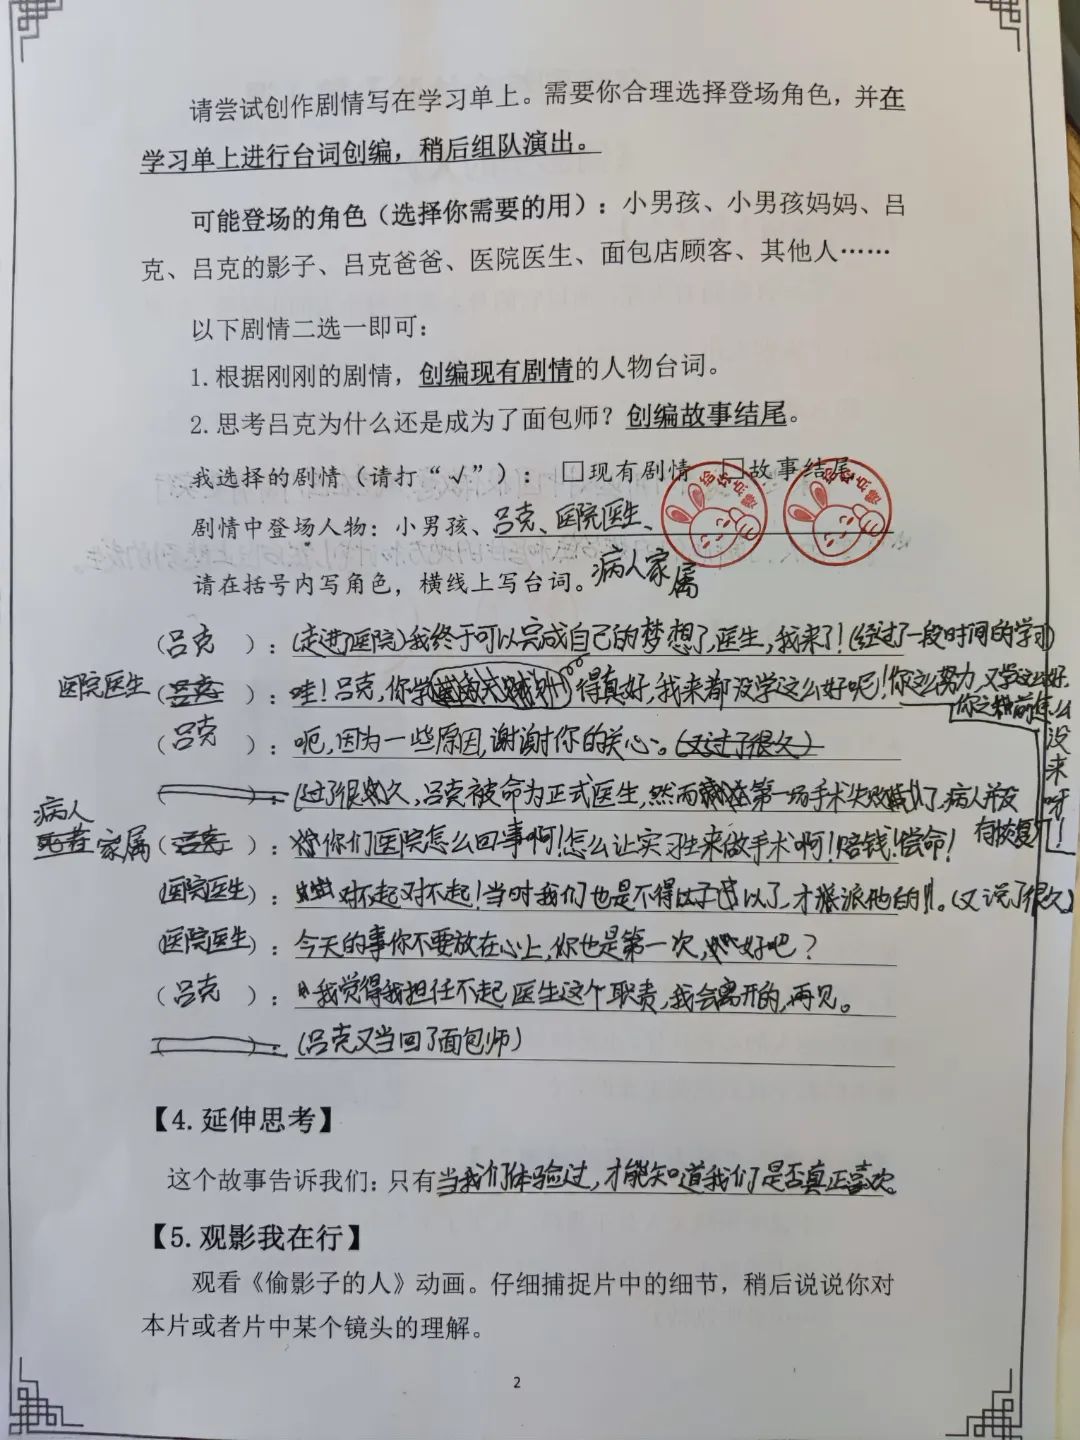 请尝试创作剧情写在学习单上。需要你合理选择登场角色，并在
学习单上进行台词创编，稍后组队演出。
可能登场的角色（选择你需要的用）：小男孩、小男孩妈妈、吕
克、吕克的影子、吕克爸爸、医院医生、面包店顾客、其他人……
以下剧情二选一即可：
1.根据刚刚的剧情，创编现有剧情的人物台词。
2.思考吕克为什么还是成为了面包师？创编故事结尾。
我选择的剧情（请打“√”）：□现有剧情 □故事结尾
剧情中登场人物：小男孩、吕克、医院医生、
病人家属
请在括号内写角色，横线上写台词。
（吕克）：(走进了医院)我终于可以完成自己的梦想了,医生,我来了!(经过了一段时间的学习)
医院医生：哇!吕克,你学得真好,我来都没学这么好呢!你这么努力,又学这么好,
你之前怎么没来呀!
（吕克）：呃,因为一些原因,谢谢你的关心。(又过了很久)
(过了很久,吕克被命为正式医生,然而在第一场手术失败了,病人并没
有恢复)
病人家属：你们医院怎么回事啊!怎么让实习生来做手术啊!赔钱!偿命!
（医院医生）：对不起对不起!当时我们也是不得以了,才派他的!。(又说了很久)
（医院医生）：今天的事你不要放在心上,你也是第一次,好吧?
（吕克）：我觉得我担任不起医生这个职责,我会离开的,再见。
(吕克又当回了面包师)
【4.延伸思考】
这个故事告诉我们：只有当我们体验过,才能知道我们是否真正喜欢。
【5.观影我在行】
观看《偷影子的人》动画。仔细捕捉片中的细节，稍后说说你对
本片或者片中某个镜头的理解。
2